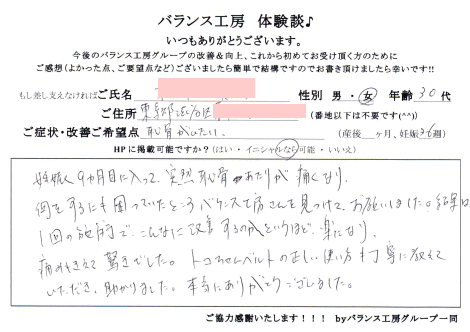 バランス工房 体験談♪
いつもありがとうございます。
今後のバランス工房グループの改善&向上、これから初めてお受け頂く方のために
ご感想(よかった点、ご要望点など)ございましたら簡単で結構ですのでお書き頂けましたら幸いです!!
もし差し支えなければご氏名 性別 男・女 年齢 30 代
ご住所 東京都渋谷区 (番地以下は不要です(^^))
ご症状・改善ご希望点 恥骨がいたい。 (産後 ヶ月、妊娠36週)
HPに掲載可能ですか?(はい・イニシャルなら可能・いいえ)
妊娠9ヵ月目に入って、突然恥骨あたりが痛くなり、
何をするにも困っていたところバランス工房さんを見つけて、お願いしました。結果は
1回の施術で、こんなに改善するのかというほど、楽になり、
痛みもきえて驚きでした。トコちゃんベルトの正しい使い方も丁寧に教えて
いただき、助かりました。本当にありがとうございました。
ご協力感謝いたします!!! byバランス工房グループ一同